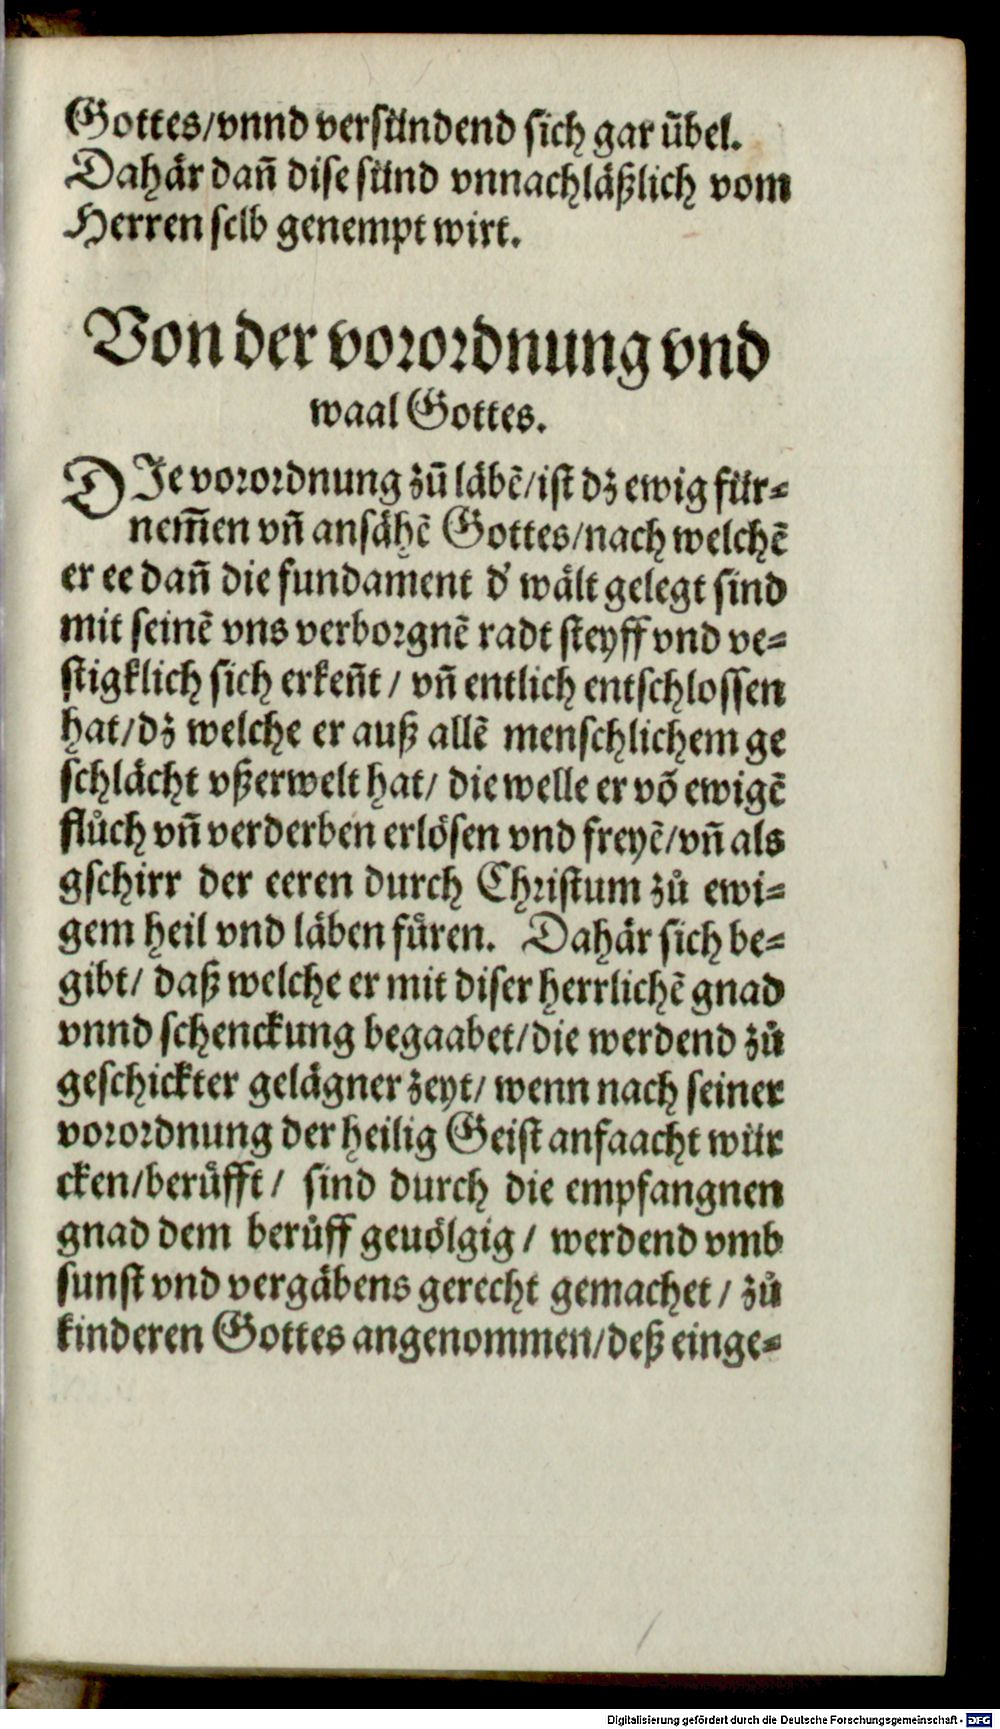 Gottes/vnnd versündend sich gar übel.
Dahär dañ dise sünd vnnachläßlich vom
Herren selb genempt wirt.
Von der vorordnung vnd
waal Gottes.
DIe vorordnung zů läbẽ/ist dz ewig für⸗
nem̃en vñ ansähẽ Gottes/nach welchẽ
er ee dañ die fundament d' wält gelegt sind
mit seinẽ vns verborgnẽ radt steyff vnd ve⸗
stigklich sich erkeñt/ vñ entlich entschlossen
hat/dz welche er auß allẽ menschlichem ge
schlächt vßerwelt hat/ die welle er võ ewigẽ
flůch vñ verderben erlösen vnd freyẽ/vñ als
gschirr der eeren durch Christum zů ewi⸗
gem heil vnd läben fůren. Dahär sich be⸗
gibt/ daß welche er mit diser herrlichẽ gnad
vnnd schenckung begaabet/die werdend zů
geschickter gelägner zeyt/ wenn nach seiner
vorordnung der heilig Geist anfaacht wür
cken/berůfft/ sind durch die empfangnen
gnad dem berůff geuölgig/ werdend vmb
sunst vnd vergäbens gerecht gemachet/ zů
kinderen Gottes angenommen/deß einge⸗
Digitalisierung gefördert durch die Deutsche Forschungsgemeinschaft - DFG